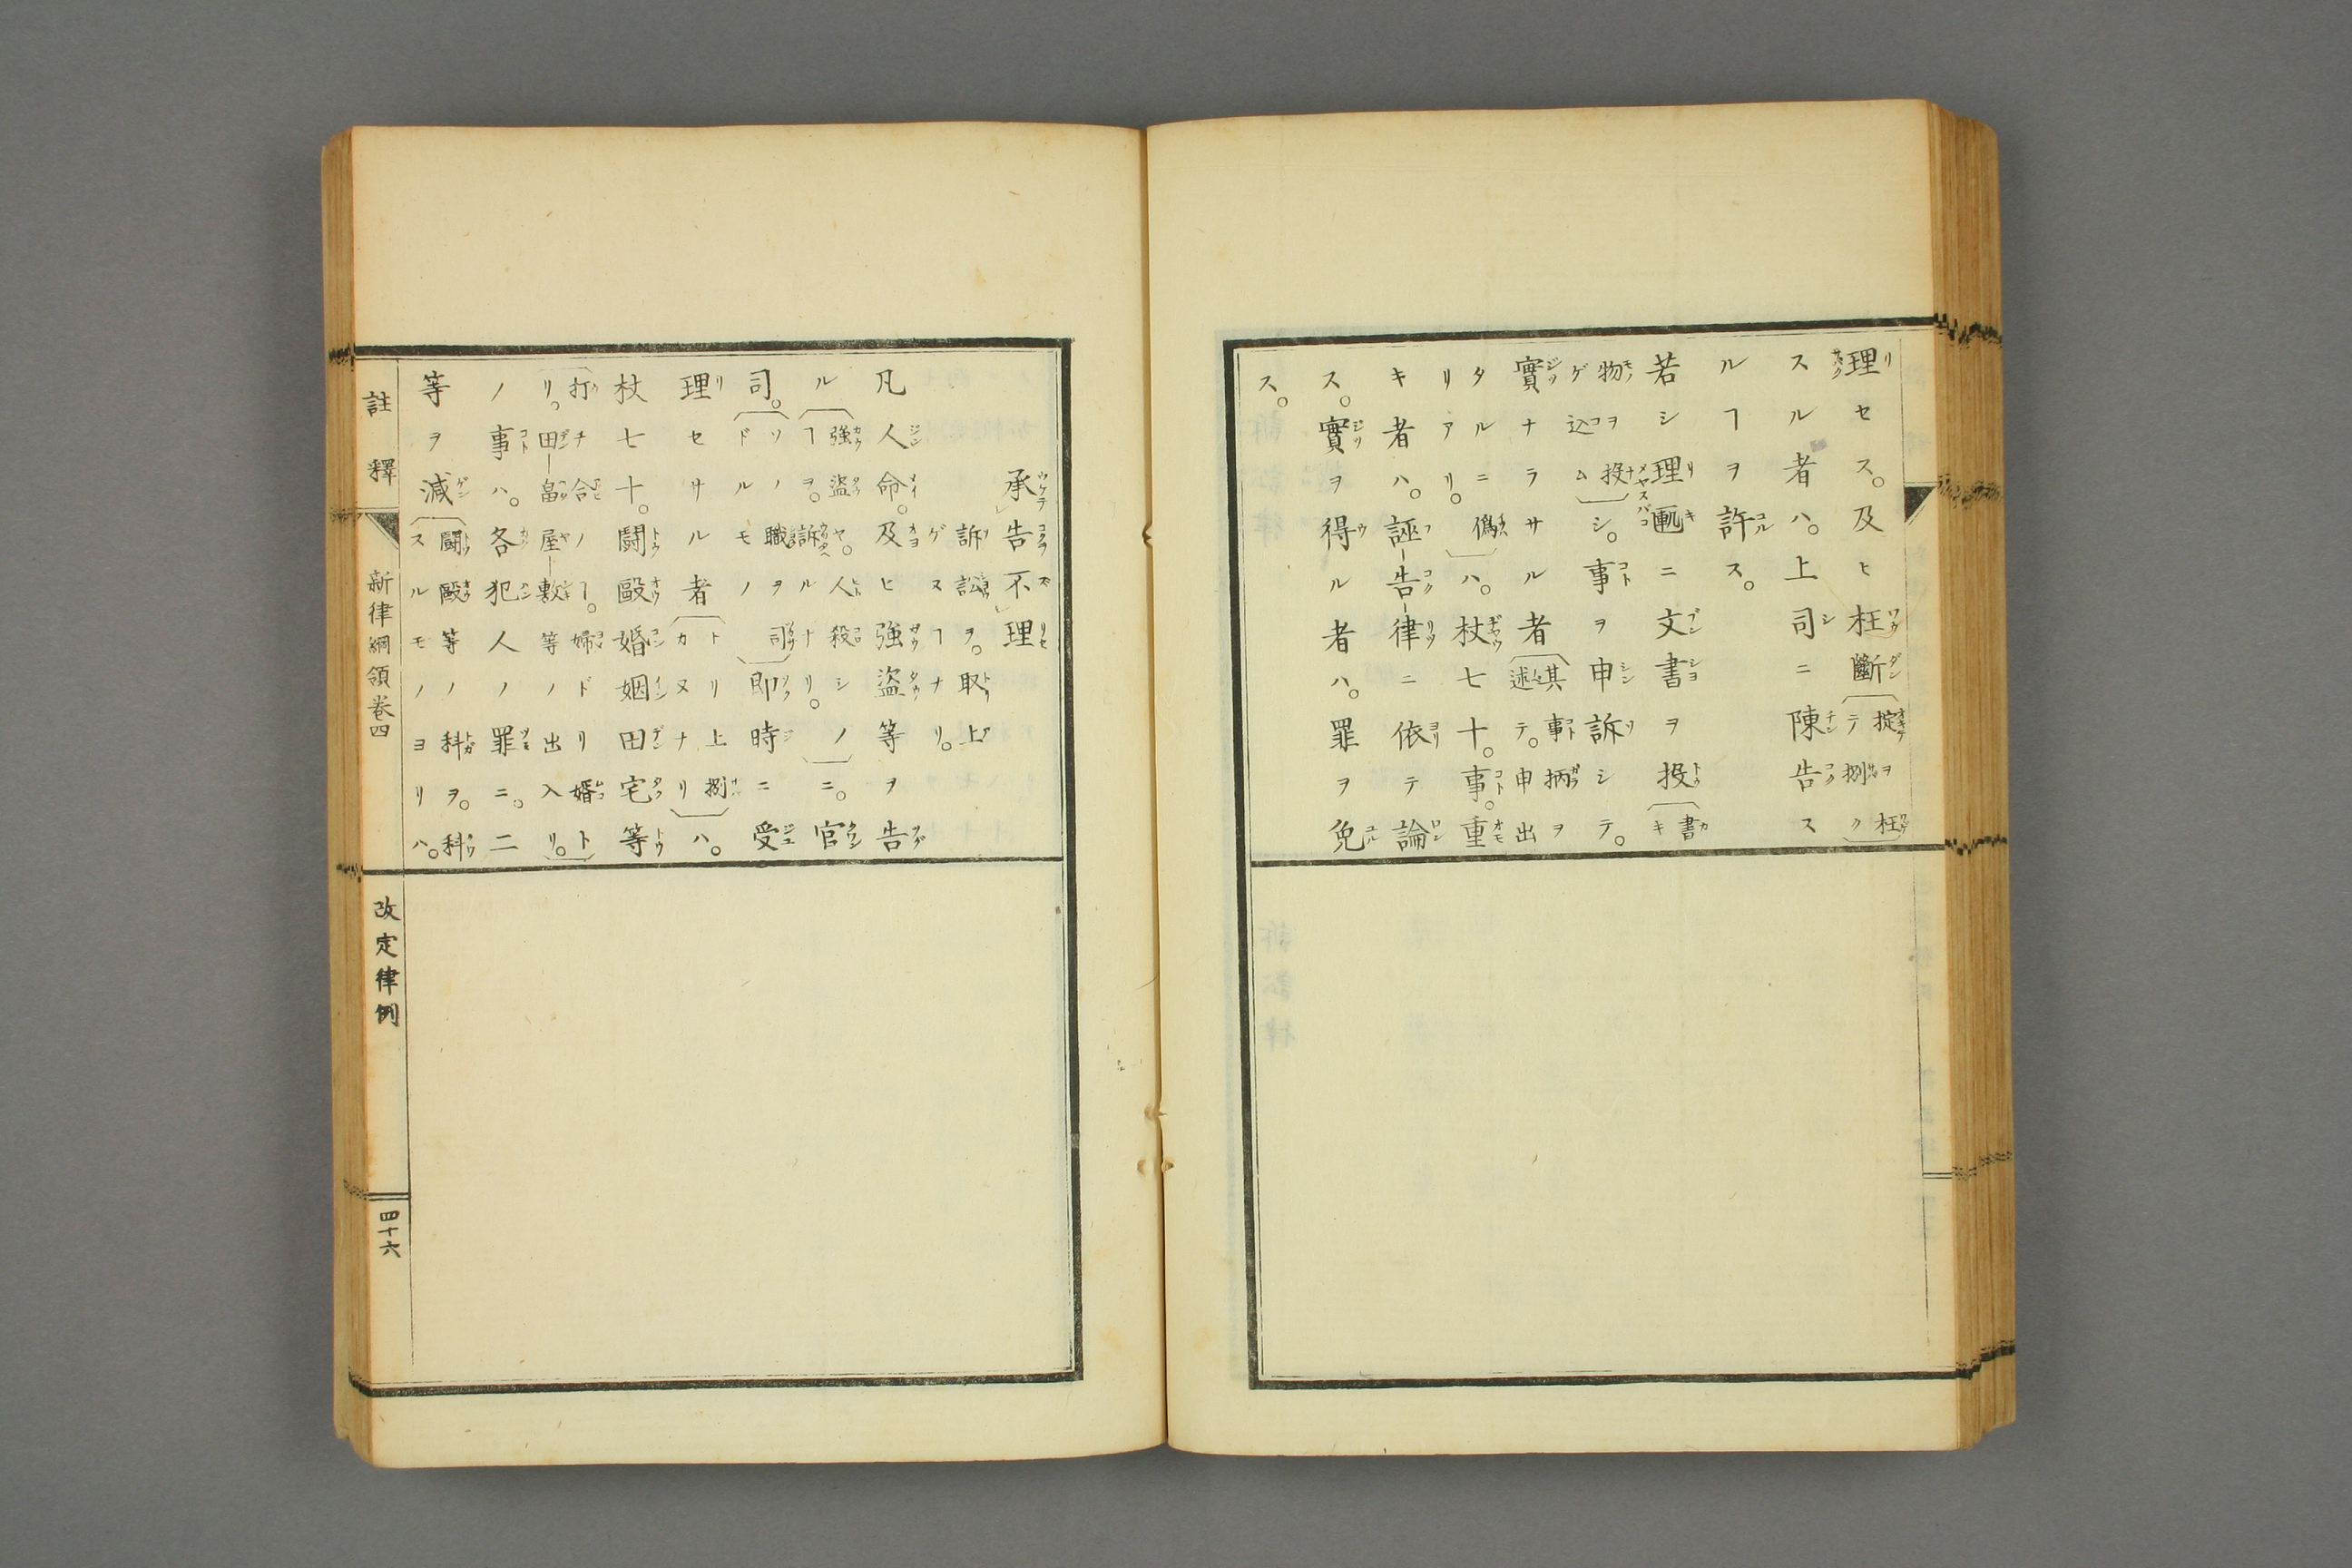 理セス。及ヒ枉斷掟ヲ枉テ捌ク
スル者ハ。上司ニ陳告ス
ルヿヲ許ス。
若シ理匭ニ文書ヲ投書キ
物ヲ投ゲ込ムシ。事ヲ申訴シテ。
實ナラサル者其事柄ヲ述テ。申出
タルニ偽リアリ。ハ。杖七十。事。重
キ者ハ。誣告律ニ依テ論
ス。實ヲ得ル者ハ。罪ヲ免
ス。
承告不理
訴訟ヲ。取上ゲスヿナリ。
凡人命。及ヒ強盗等ヲ告
ル強盗ヤ。人殺シノヿヲ。訴ルナリ。ニ。官
司。ソノ職ヲ司ドルモノ即時ニ受
理セサル者トリ上捌カヌナリハ。
杖七十。鬪毆婚姻田宅等
打チ合ノヿ。婦ドリ婿トリ。田畠屋敷等ノ出入リ。
ノ事ハ。各犯人ノ罪ニ。二
等ヲ減鬪毆等ノ科ヲ。科スルモノヨリハ。
註釋 新律綱領卷四 改定律例 四十六